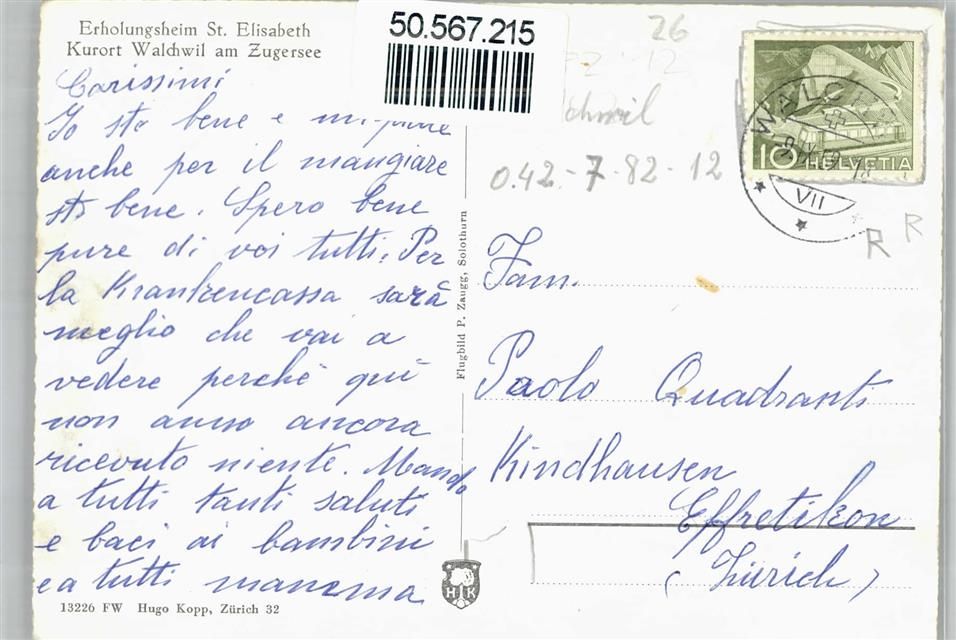 Erholungsheim St. Elisabeth
Kurort Walchwil am Zugersee
50.567.215
26
Carissimi
Io sto bene e mi pare
anche per il mangiare
sto bene. Spero bene
pure di voi tutti. Per
la Krankencassa sarà
meglio che vai a
vedere perchè qui
non anno ancora
ricevuto niente. Mando
a tutti tanti saluti
e baci ai bambini
e a tutti mamma
13226 FW Hugo Kopp, Zürich 32
Flugbild P. Zaugg, Solothurn
HK
chwil
042-7-82-12
WALC
VII
10 HELVETIA
R R
Fam.
Paolo Quadranti
Kindhausen
Effretikon
(Zürich)